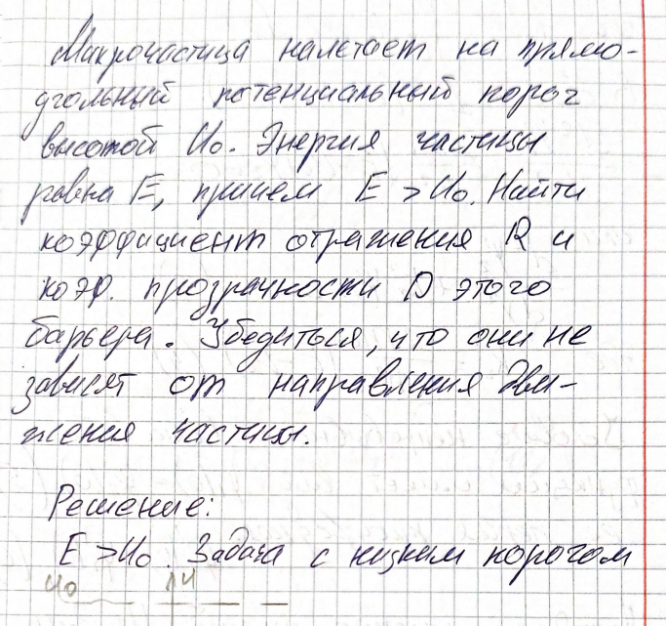 Микрочастица налетает на прямо-
угольный потенциальный порог
высотой U₀. Энергия частицы
равна E, причем E > U₀. Найти
коэффициент отражения R и
коэф. прозрачности D этого
барьера. Убедиться, что они не
зависят от направления дви-
жения частицы.
Решение:
E > U₀. Задача с низким порогом
U₀ U